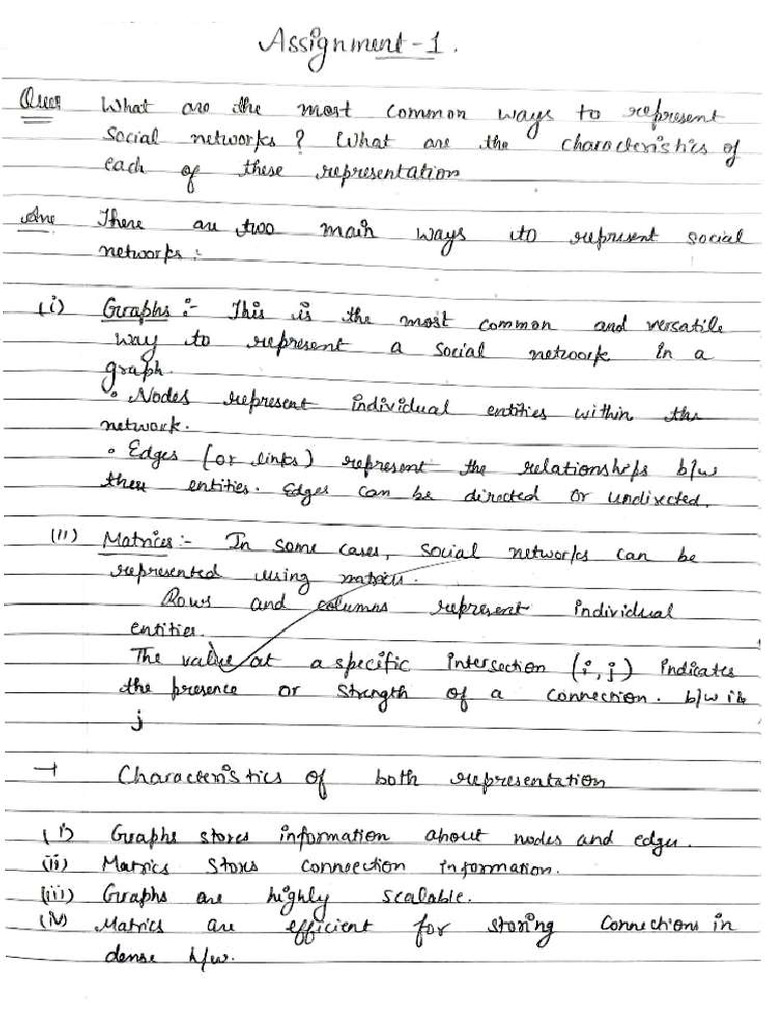 Assignment-1.
Ques What are the most common ways to represent
social networks? What are the characteristics of
each of these representation
Ans There are two main ways to represent social
networks:-
(i) Graphs:- This is the most common and versatile
way to represent a social network in a
graph.
• Nodes represent individual entities within the
network.
• Edges (or links) represent the relationships b/w
these entities. Edges can be directed or undirected.
(ii) Matrices:- In some cases, social networks can be
represented using matrics.
Rows and columns represent individual
entities.
The value at a specific intersection (i,j) indicates
the presence or strength of a connection. b/w i &
j
→ Characteristics of both representation
(i) Graphs stores information about nodes and edges.
(ii) Matrics stores connection information.
(iii) Graphs are highly scalable.
(iv) Matrics are efficient for storing connections in
dense n/w.